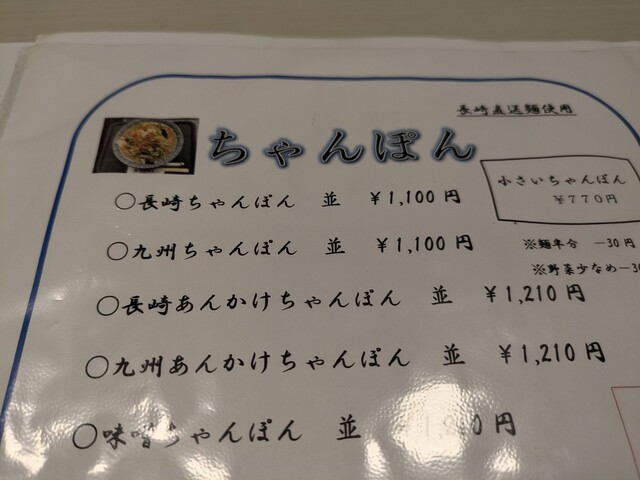 長崎直送麺使用
ちゃんぽん
小さいちゃんぽん
￥770円
○長崎ちゃんぽん 並 ￥1,100円
○九州ちゃんぽん 並 ￥1,100円
※麺半分 －30円
※野菜少なめ－30
○長崎あんかけちゃんぽん 並 ￥1,210円
○九州あんかけちゃんぽん 並 ￥1,210円
○味噌ちゃんぽん 並 円